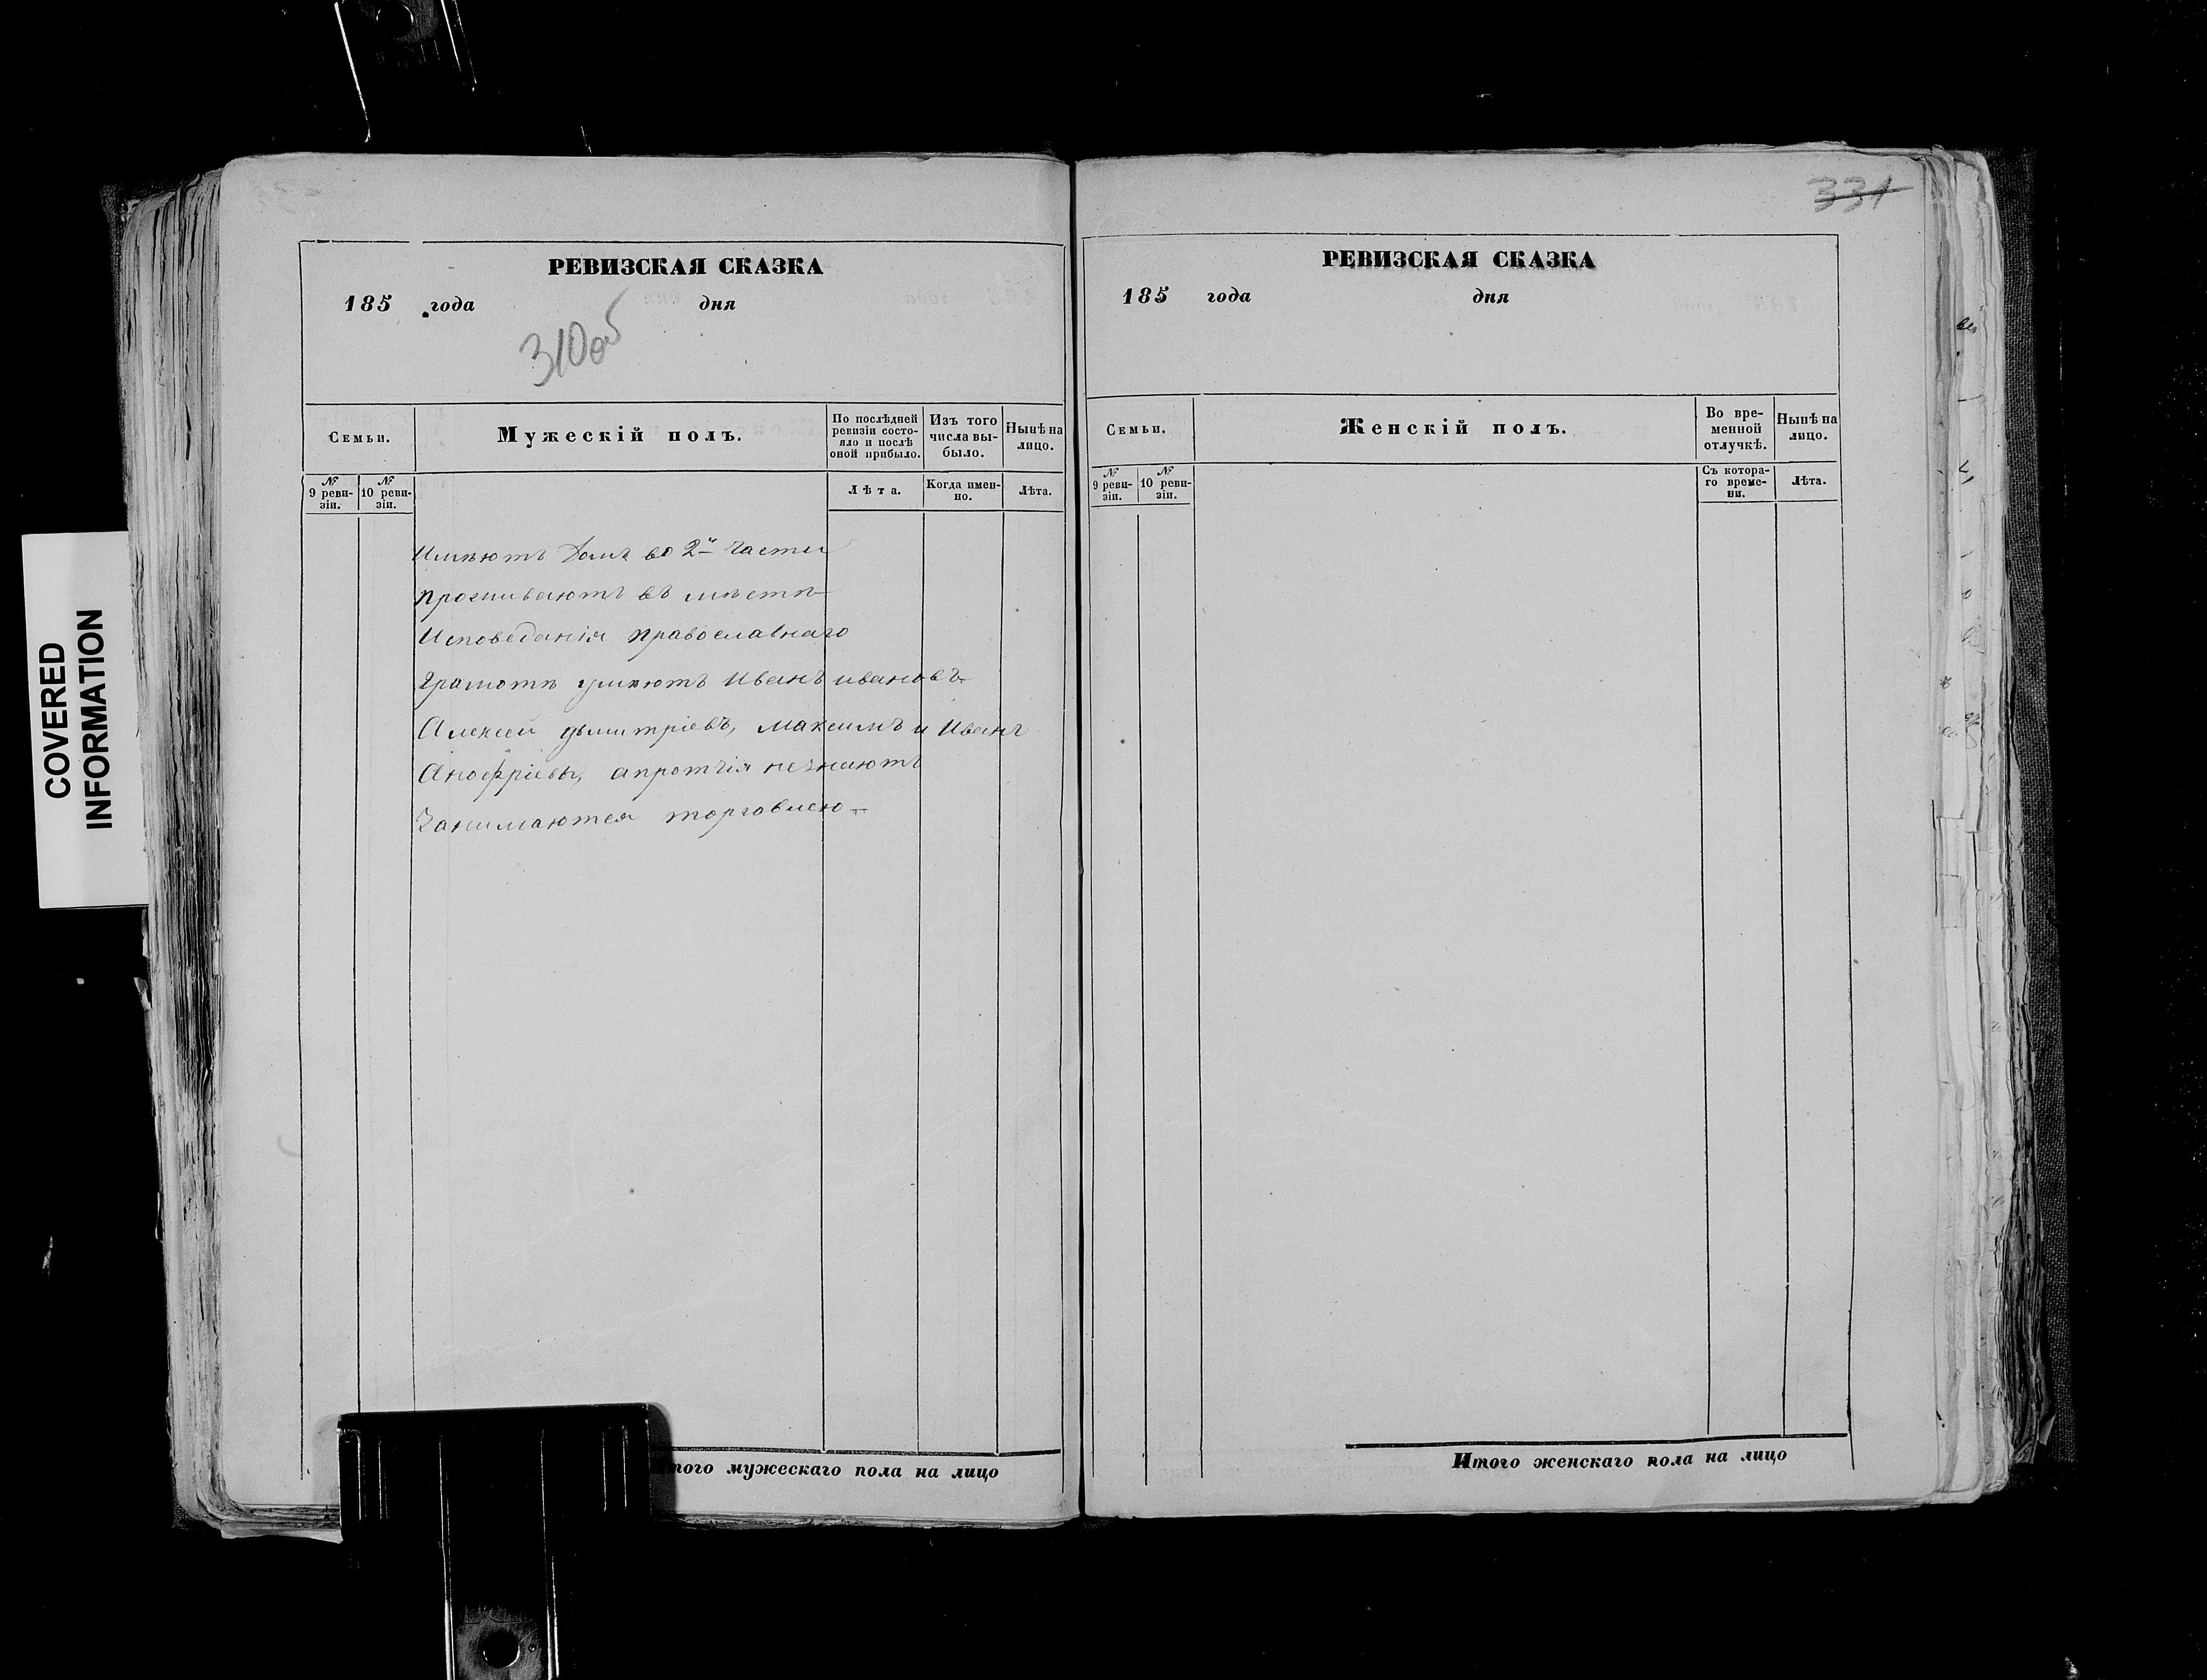 COVERED
INFORMATION
РЕВИЗСКАЯ СКАЗКА
185 года дня
310об
Семьи.
Мужескій полъ.
По послѣдней
ревизіи состо-
яло и послѣ
оной прибыло.
Изъ того
числа вы-
было.
Нынѣ на
лицо.
№
9 реви-
зіи.
№
10 реви-
зіи.
Лѣта.
Когда имен-
но.
Лѣта.
Имѣютъ домъ во 2й части
проживаютъ въ мѣстѣ
Исповеданія православнаго
Грамотѣ умѣютъ Иванъ ивановъ
Алексей дмитріевъ, Максимъ и Иванъ
Анофріевы, апротчія незнаютъ
Занимаются торговлею
того мужескаго пола на лицо
331
РЕВИЗСКАЯ СКАЗКА
185 года дня
Семьи.
Женскій полъ.
Во вре-
менной
отлучкѣ.
Нынѣ на
лицо.
№
9 реви-
зіи.
№
10 реви-
зіи.
Съ котора-
го време-
ни.
Лѣта.
Итого женскаго пола на лицо